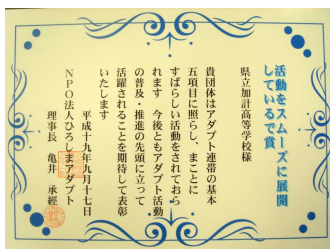 活動をスムーズに展開
しているで賞
県立加計高等学校様
貴団体はアダプト連帯の基本
五項目に照らし、まことに
すばらしい活動をされておら
れます 今後ともアダプト活動
の普及・推進の先頭に立って
活躍されることを期待して表彰
いたします
平成十九年九月十七日
NPO法人ひろしまアダプト
理事長 亀井 承經